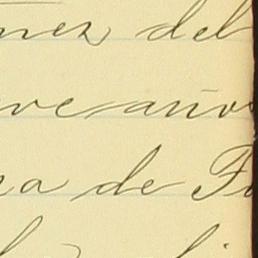 nez del
ve años
ra de F